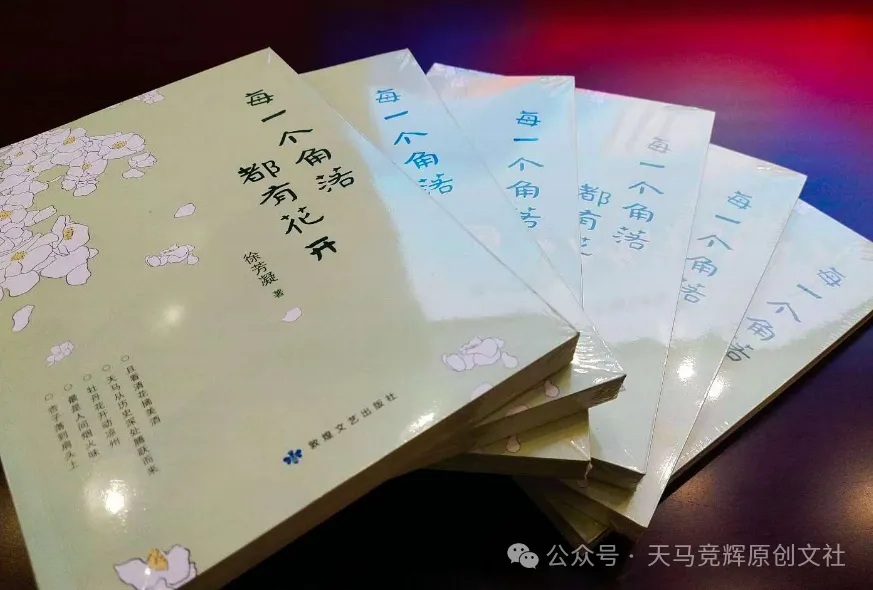 每一个角落
都有花开
徐芳凝 著
○ 且看清花摘美酒
○ 天马从历史深处腾跃而来
○ 牡丹花开动凉州
○ 最是人间烟火味
○ 杏子落到眉头上
敦煌文艺出版社
每一个角落
每一个角落
每一个角落
都有花
每一个角落
每一个角落
公众号·天马竞辉原创文社